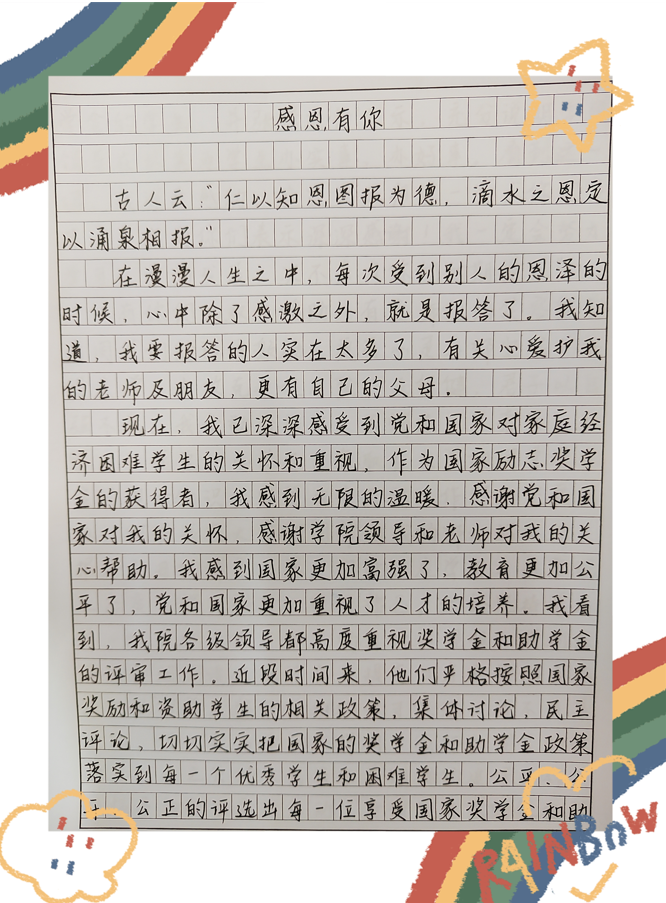 感恩有你
古人云：“仁以知恩图报为德，滴水之恩定
以涌泉相报。”
在漫漫人生之中，每次受到别人的恩泽的
时候，心中除了感激之外，就是报答了。我知
道，我要报答的人实在太多了，有关心爱护我
的老师及朋友，更有自己的父母。
现在，我已深深感受到党和国家对家庭经
济困难学生的关怀和重视，作为国家励志奖学
金的获得者，我感到无限的温暖．感谢党和国
家对我的关怀，感谢学院领导和老师对我的关
心帮助。我感到国家更加富强了，教育更加公
平了，党和国家更加重视了人才的培养。我看
到，我院各级领导都高度重视奖学金和助学金
的评审工作。近段时间来，他们严格按照国家
奖励和资助学生的相关政策，集体讨论，民主
评论，切切实实把国家的奖学金和助学金政策
落实到每一个优秀学生和困难学生。公平、公
公正的评选出每一位享受国家奖学金和助
RAINBOW